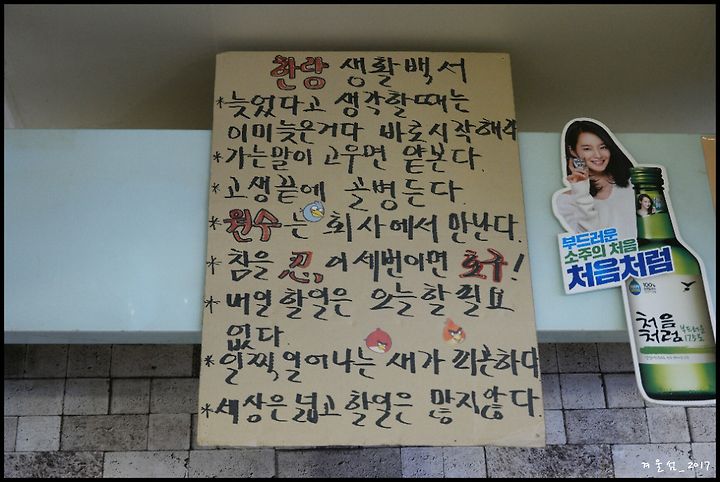 한랑 생활백서
*늦었다고 생각할때는
이미늦은거다 바로시작해라
*가는말이 고우면 얕본다.
*고생끝에 골병든다.
*원수는 회사에서 만난다.
*참을 忍, 이세번이면 호구!
*내일할일은 오늘할필요
없다
*일찍일어나는 새가 피곤하다
*세상은넓고 할일은 많지않다
부드러운
소주의 처음
처음처럼
100%
처음
처럼
부드러운
17.5도
겨울섬_2017